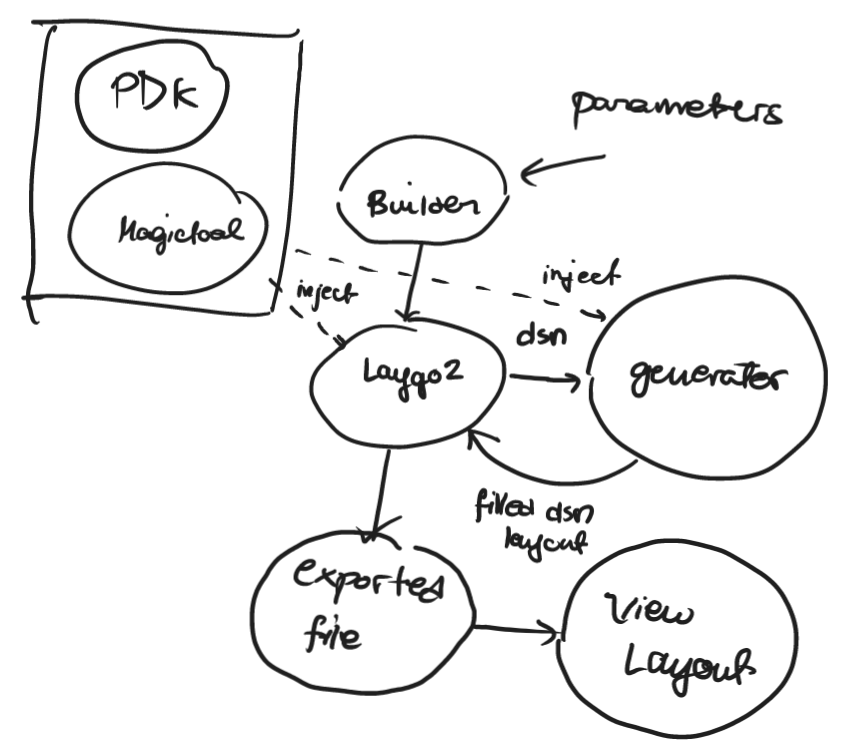 PDK
parameters
Builder
Magictool
inject
inject
dsn
Laygo2
generator
filled dsn
layout
exported
file
View
Layout